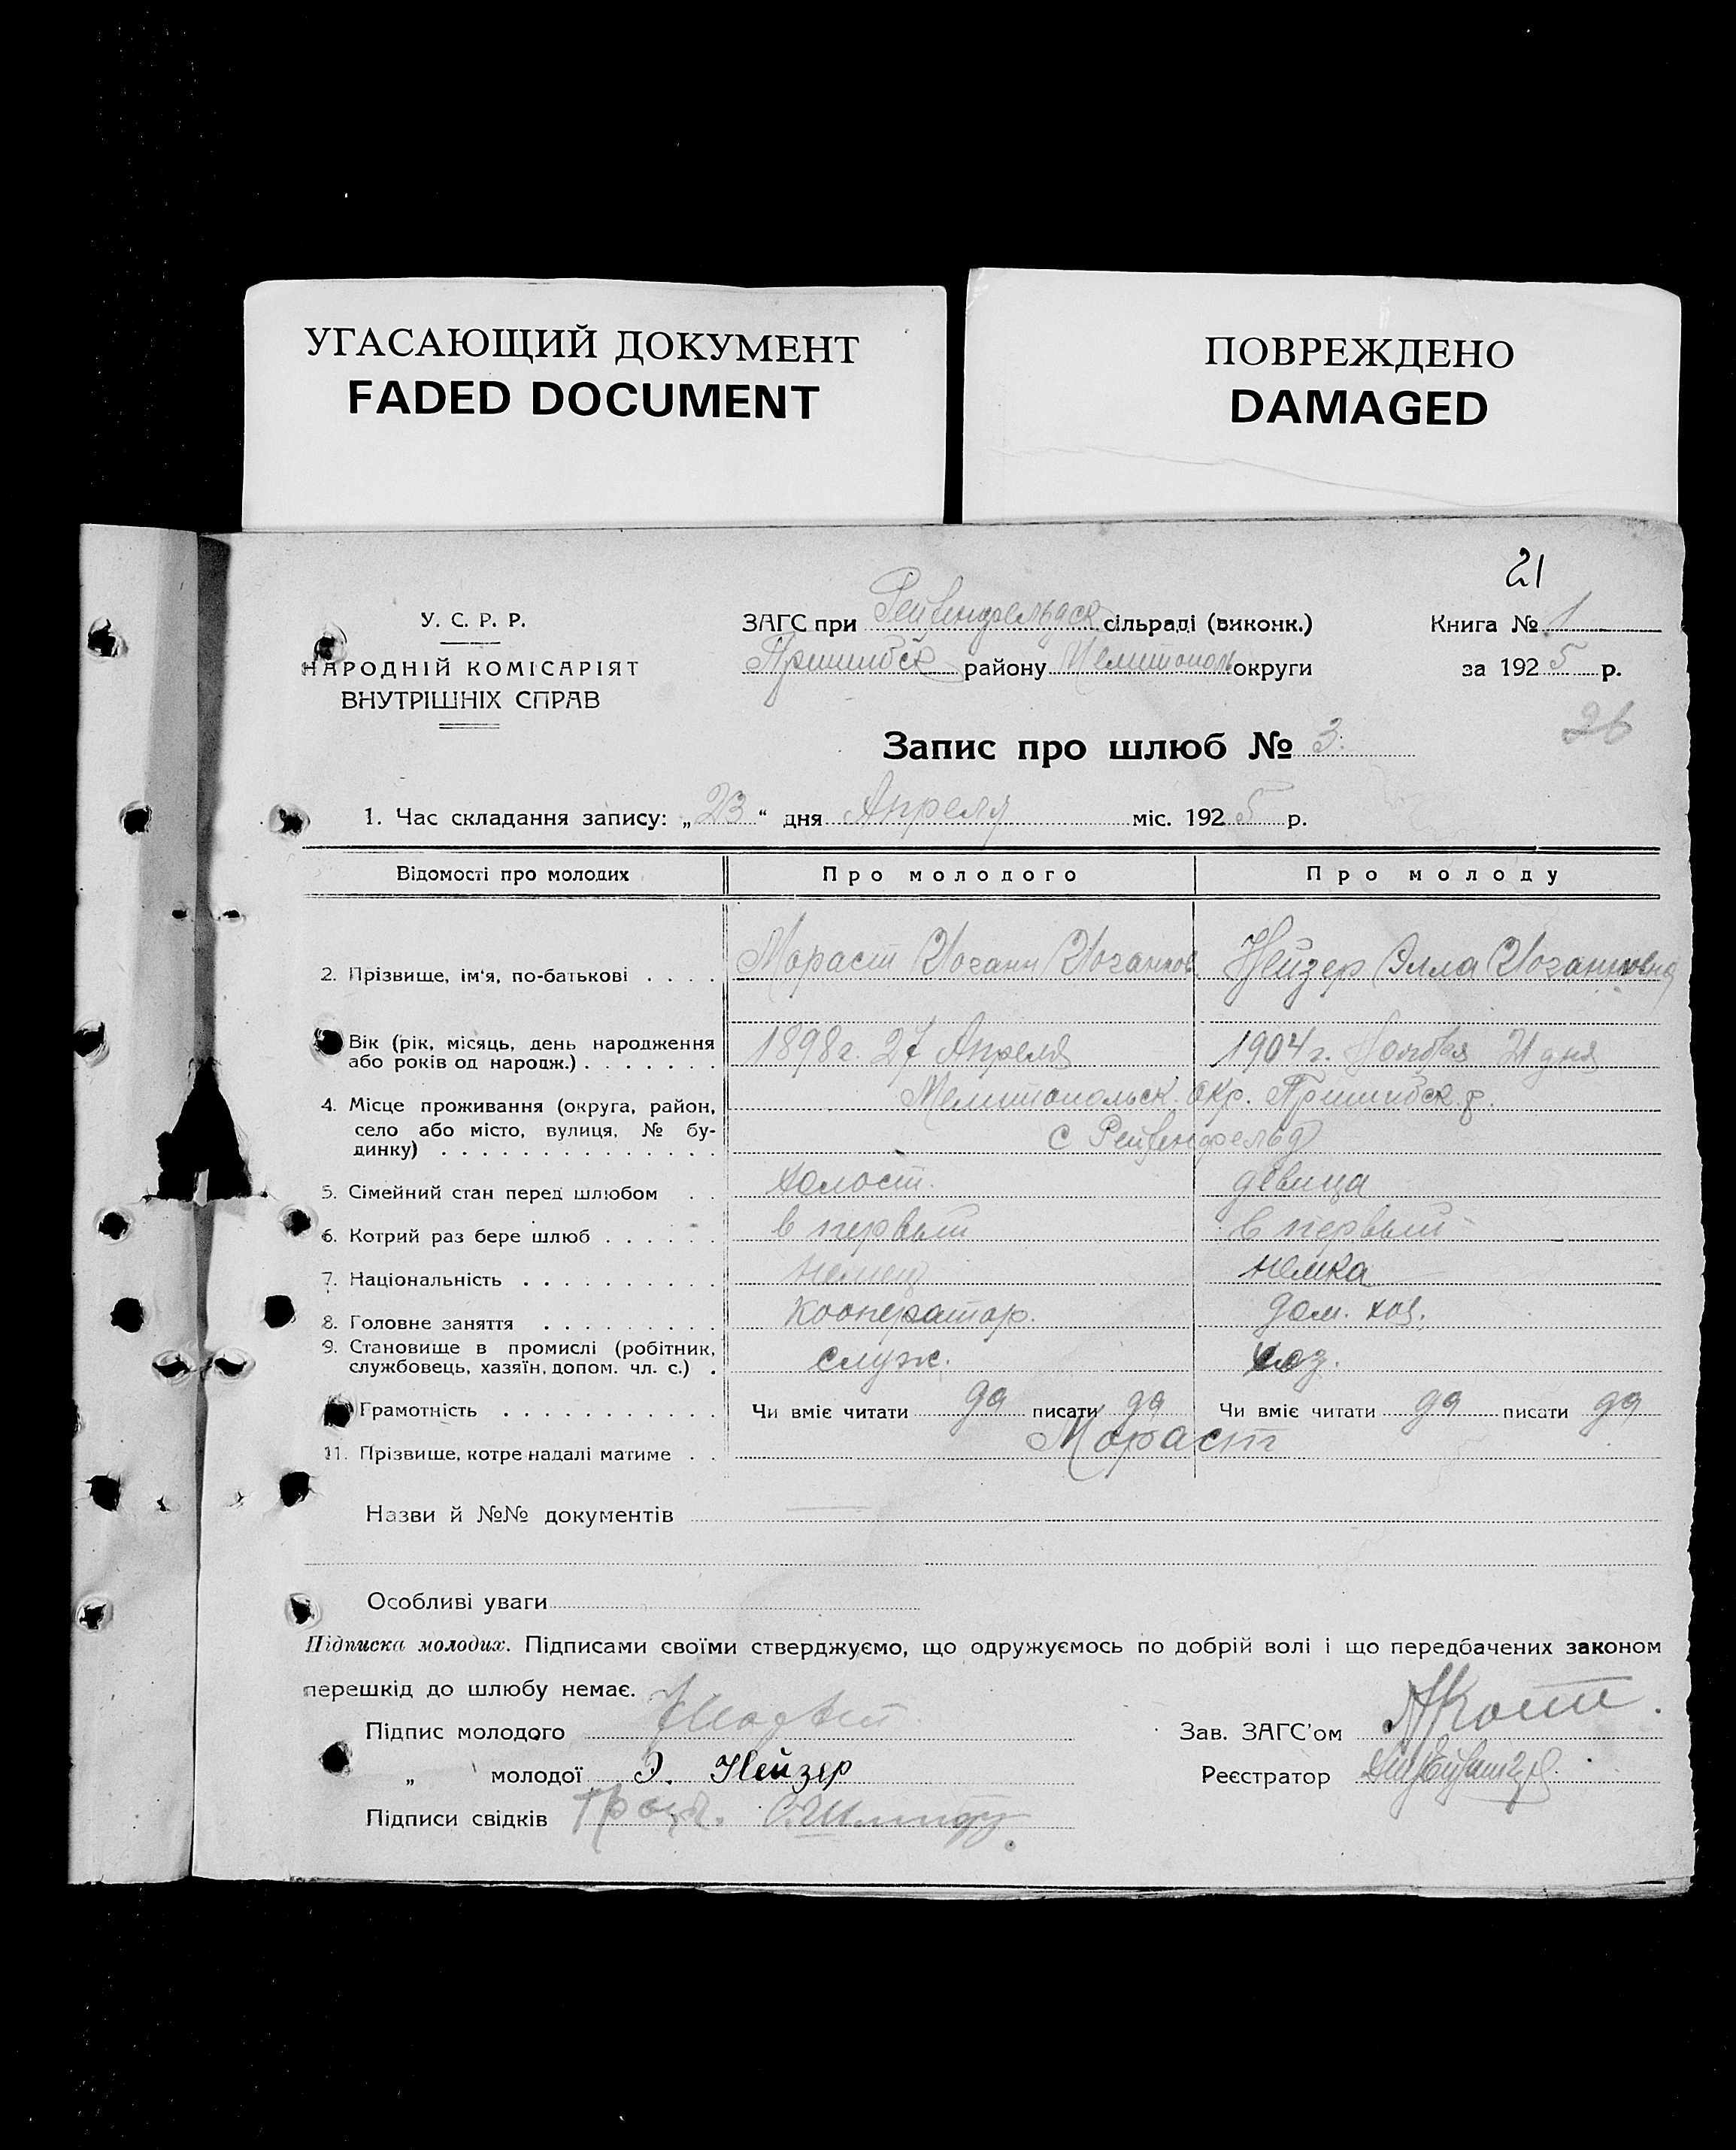 УГАСАЮЩИЙ ДОКУМЕНТ
FADED DOCUMENT
ПОВРЕЖДЕНО
DAMAGED
21
У. С. Р. Р.
НАРОДНІЙ КОМІСАРІЯТ
ВНУТРІШНІХ СПРАВ
ЗАГС при Рейхенфельдск сільраді (виконк.)
Пришибск району Мелитополь округи
Книга № 1
за 1925 р.
26
Запис про шлюб № 3.
1. Час складання запису: „23“ дня Апреля міс. 1925 р.
Відомості про молодих Про молодого Про молоду
2. Прізвище, ім'я, по-батькові . . . . Мораст Иоганн Иоганнов. Нейзер Элла Иоганновна
Вік (рік, місяць, день народження або років од народж.) . . . . . . . 1898 г. 27 Апреля 1904 г. Ноября 21 дня
4. Місце проживання (округа, район, село або місто, вулиця, № будинку) . . . . . . . . . . . . . . Мелитопольск. окр. Пришибск. р.
с Рейхенфельд
5. Сімейний стан перед шлюбом . . холост. девица
6. Котрий раз бере шлюб . . . . . . в первый в первый
7. Національність . . . . . . . . . . немец немка
8. Головне заняття . . . . . . . . . кооператор. дом. хоз.
9. Становище в промислі (робітник, службовець, хазяїн, допом. чл. с.) . служ. хоз.
Грамотність . . . . . . . . . . . Чи вміє читати да писати да Чи вміє читати да писати да
11. Прізвище, котре надалі матиме . . Мораст
Назви й №№ документів
Особливі уваги
Підписка молодих. Підписами своїми стверджуємо, що одружуємось по добрій волі і що передбачених законом
перешкід до шлюбу немає.
Підпис молодого
„ молодої Э. Нейзер
Підписи свідків
Зав. ЗАГС'ом
Реєстратор